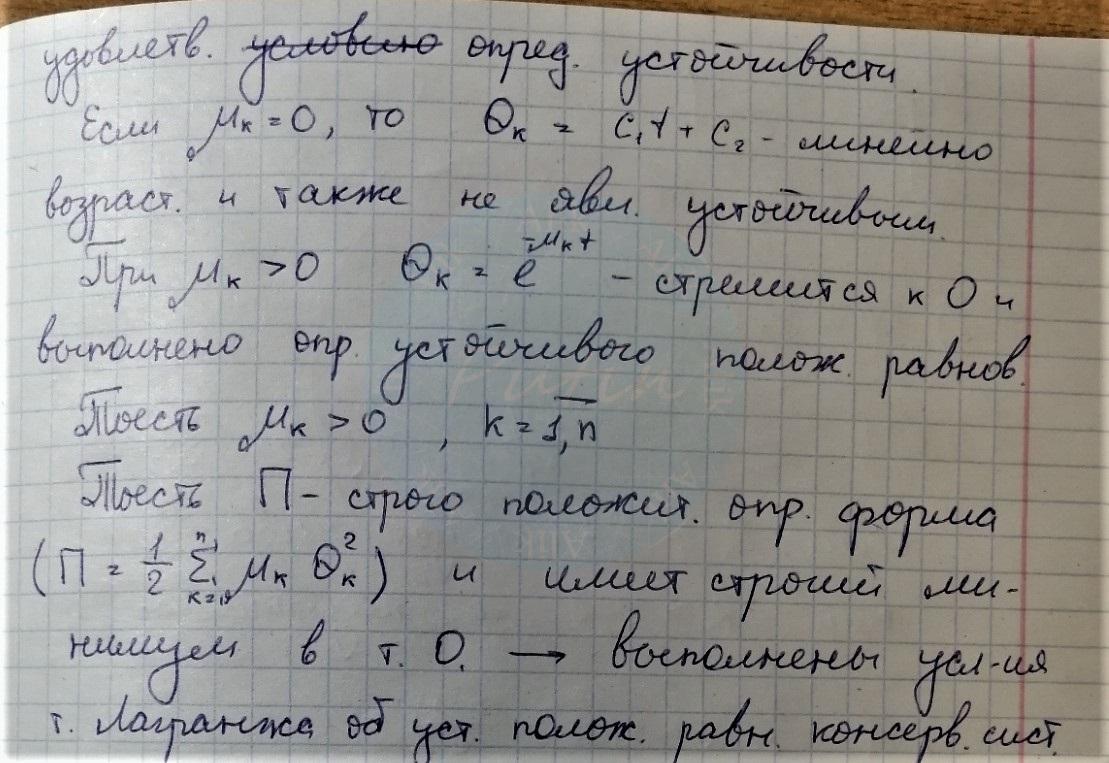 удовлетв. условию опред. устойчивости.
Если μₖ = 0, то Θₖ = C₁t + C₂ - линейно
возраст. и также не явл. устойчивым.
При μₖ > 0 Θₖ = e^{-μₖt} - стремится к 0 и
выполнено опр. устойчивого полож. равнов.
Тоесть μₖ > 0 , k = \overline{1,n}
Тоесть П - строго положит. опр. форма
(П = \frac{1}{2} \sum_{k=1}^{n} μₖ Θₖ²) и имеет строгий ми-
нимум в т. О. → выполнены усл-ия
т. Лагранжа об уст. полож. равн. консерв. сист.